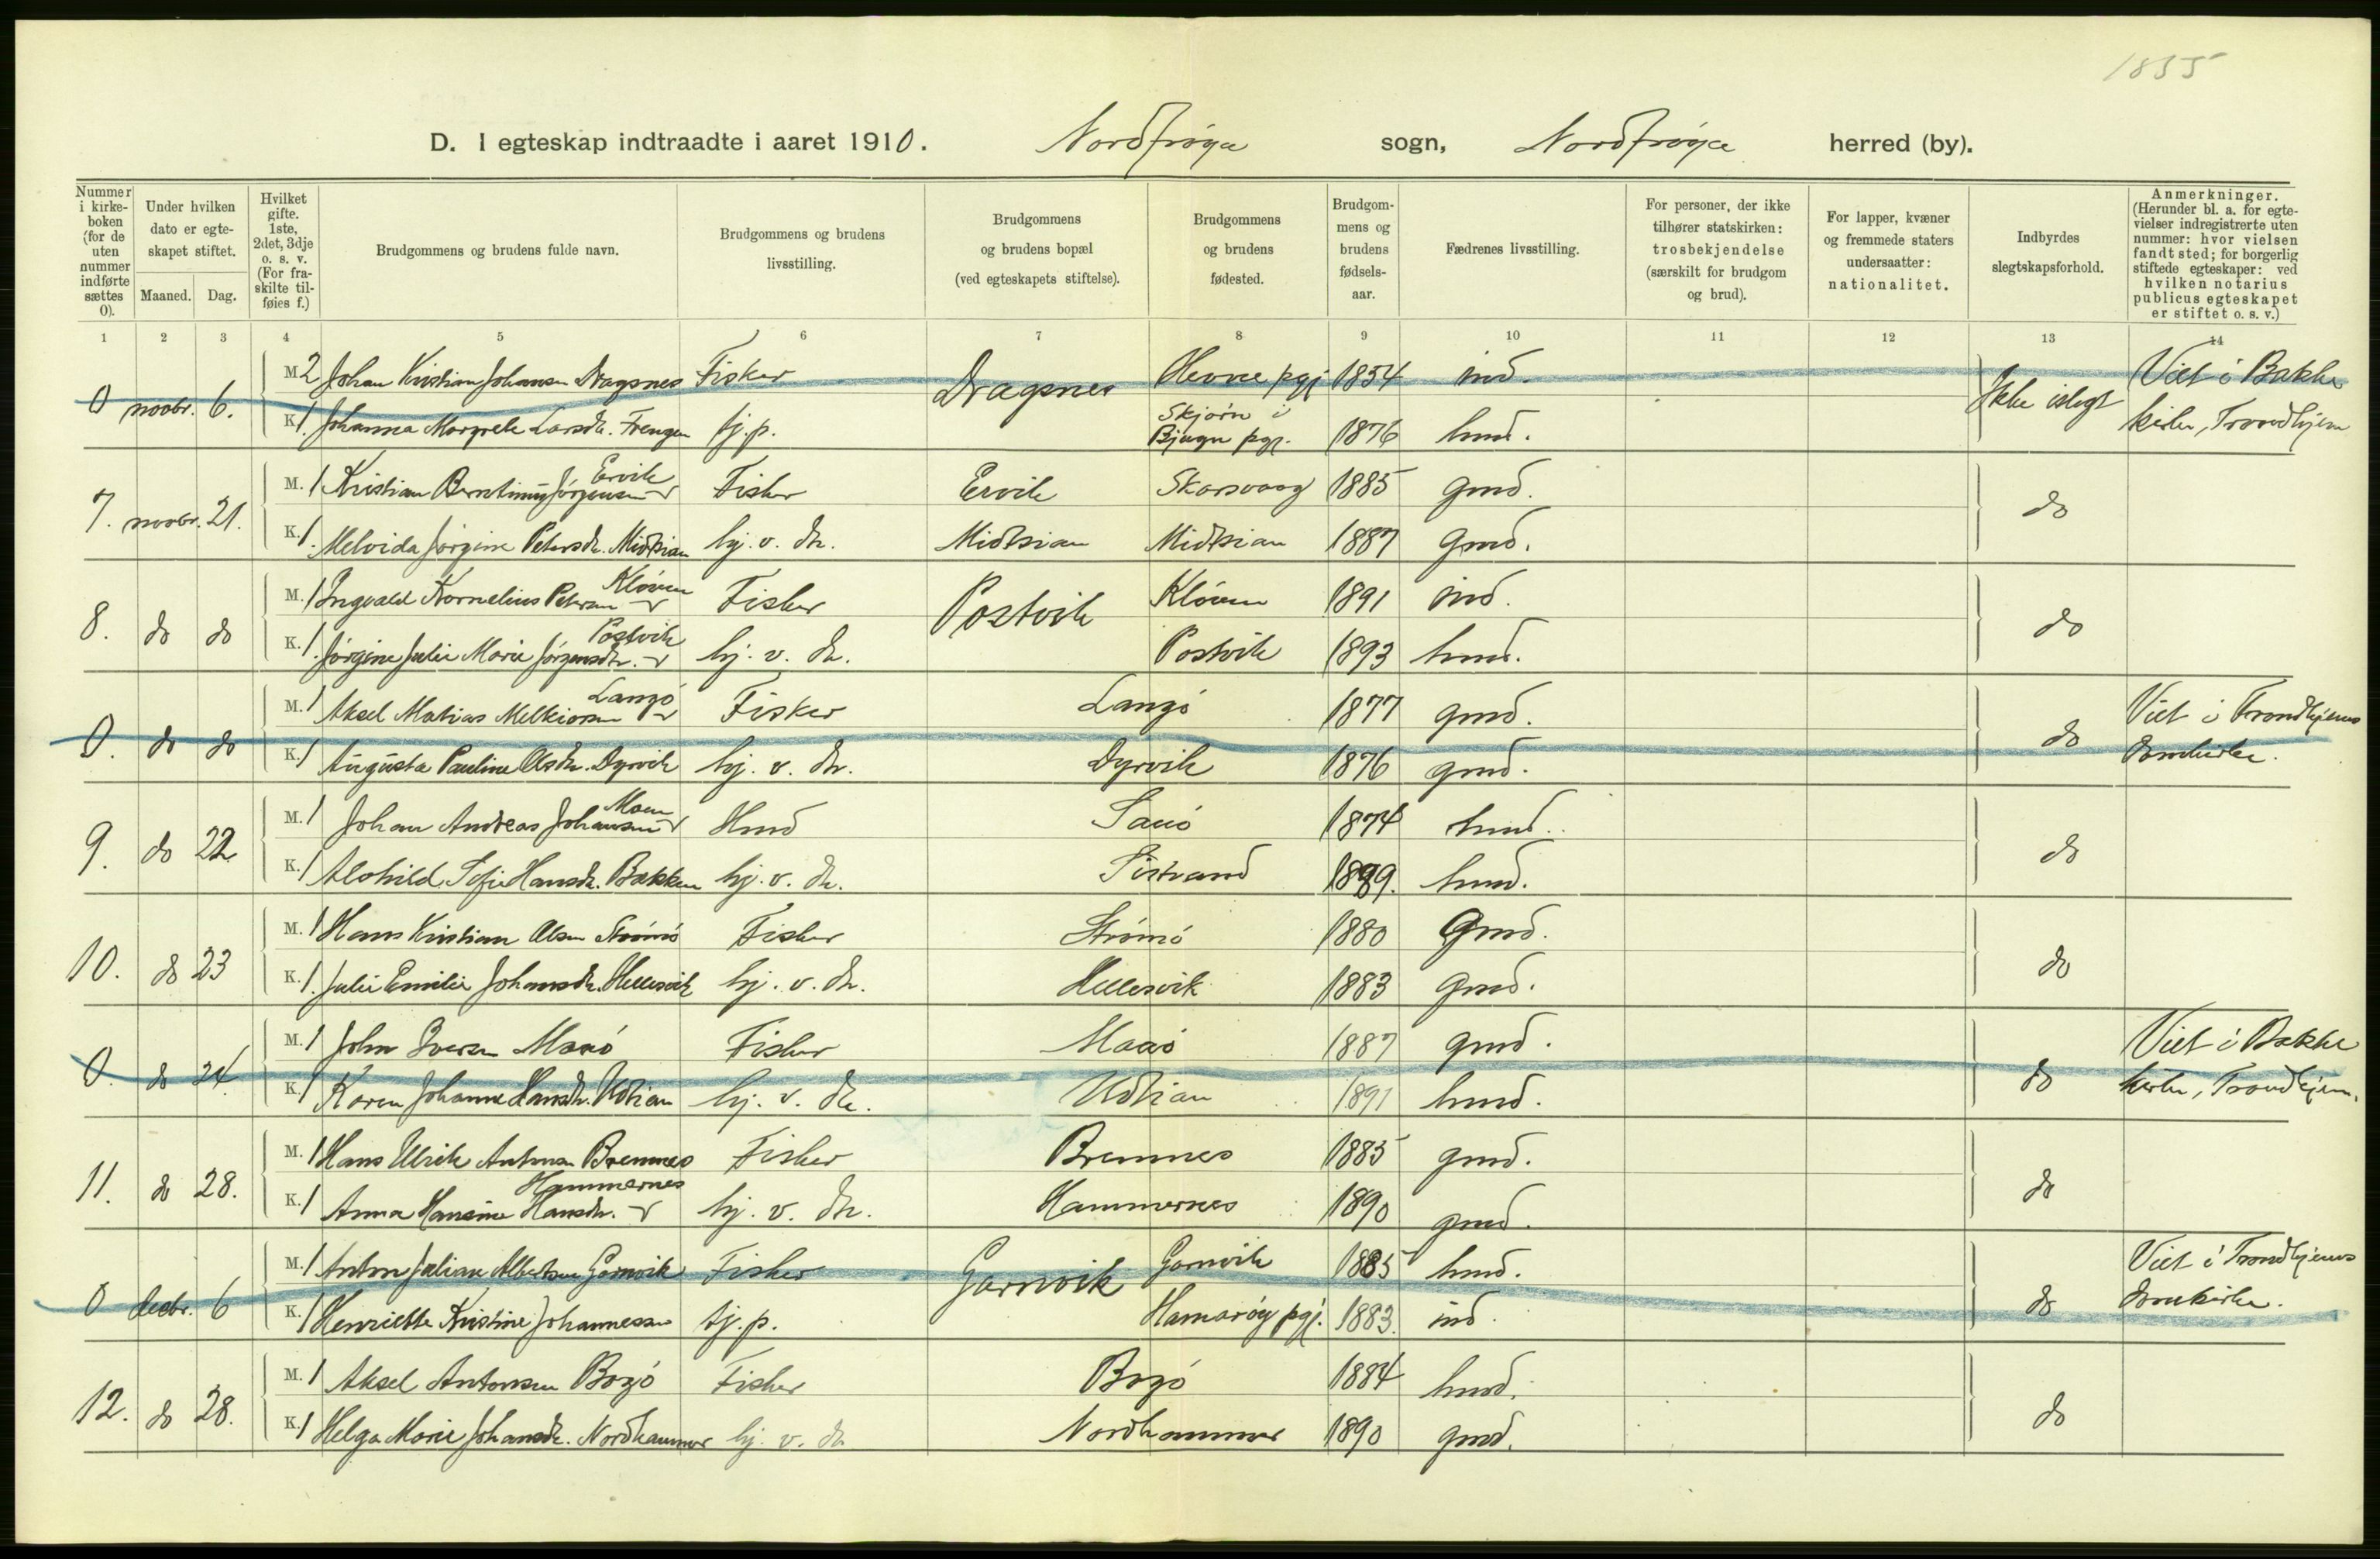 1835
D. I egteskap indtraadte i aaret 1910. Nordfrøya sogn, Nordfrøya herred (by).
Nummer i kirkeboken (for de uten nummer indførte sættes 0).
Under hvilken dato er egteskapet stiftet.
Maaned. Dag.
Hvilket gifte. 1ste, 2det, 3dje o. s. v. (For fraskilte tilføies f.)
Brudgommens og brudens fulde navn.
Brudgommens og brudens livsstilling.
Brudgommens og brudens bopæl (ved egteskapets stiftelse).
Brudgommens og brudens fødested.
Brudgommens og brudens fødselsaar.
Fædrenes livsstilling.
For personer, der ikke tilhører statskirken: trosbekjendelse (særskilt for brudgom og brud).
For lapper, kvæner og fremmede staters undersaatter: nationalitet.
Indbyrdes slegtskapsforhold.
Anmerkninger. (Herunder bl. a. for egtevielser indregistrerte uten nummer: hvor vielsen fandt sted; for borgerlig stiftede egteskaper: ved hvilken notarius publicus egteskapet er stiftet o. s. v.)
1 2 3 4 5 6 7 8 9 10 11 12 13 14
0 novbr. 6. M 2 Johan Kristian Johansen Dragsnes Fisker Dragsnes Hevne pgj 1854 ind. Ikke islegt Viet i Bakke
K 1. Johanna Margrete Larsdtr. Frengen tj.p. Skjørn i Bjugn pgj. 1876 husd. kirke, Trondhjem
7. novbr. 21. M. 1 Kristian Berntinus Jørgensen Ervik Fisker Ervik Skarsvaag 1885 gmd. do
K. 1. Melvida Jørgine Petersdtr. Midtsian hj. v. dtr. Midtsian Midtsian 1887 gmd.
8. do do M. 1 Ingvald Kornelius Petersen Kløven Fisker Postvik Kløven 1891 ind. do
K. 1. Jørgine Julie Marie Jørgensdtr. Postvik hj. v. dtr. Postvik 1893 husd.
0. do do M. 1 Aksel Matias Melkiorsen Langø Fisker Langø 1877 gmd. do Viet i Trondhjems
K. 1 Augusta Pauline Olsdtr. Dyrvik hj. v. dtr. Dyrvik 1876 gmd. domkirke.
9. do 22 M. 1 Johan Andreas Johansen Moen Husd 1874 husd. do
K. 1 Alvhild Sofie Hansdtr. Bakken hj. v. dtr. Sistrand 1889. husd.
10. do 23 M. 1 Hans Kristian Olsen Strømø Fisker Strømø 1880 Gmd. do
K. 1. Julie Emilie Johansdtr. Hellesvik hj. v. dtr. Hellesvik 1883 gmd.
0. do 24. M. 1 John Iversen Maaø Fisker Maaø 1887 gmd. do Viet i Bakke
K. 1 Karen Johanna Hansdtr. Udtian hj. v. dtr. Udtian 1891 husd. kirke, Trondhjem.
11. do 28. M. 1 Hans Ulrik Antonsen Bremnes Fisker Bremnes 1885 gmd. do
K. 1 Anna Hansine Hansdtr. Hammernes hj. v. dtr. Hammernes 1890 gmd.
0 decbr. 6 M. 1 Anton Julian Albertsen Garnvik Fisker Garnvik Garnvik 1885 husd. do Viet i Trondhjems
K. 1 Henriette Kristine Johannessen tj. p. Hamarøy pgj. 1883. ind. domkirke.
12. do 28. M. 1 Aksel Antonsen Bogø Fisker Bogø 1884 husd. do
K. 1 Helga Marie Johansdtr. Nordhammer hj. v. dtr Nordhammer 1890 gmd.